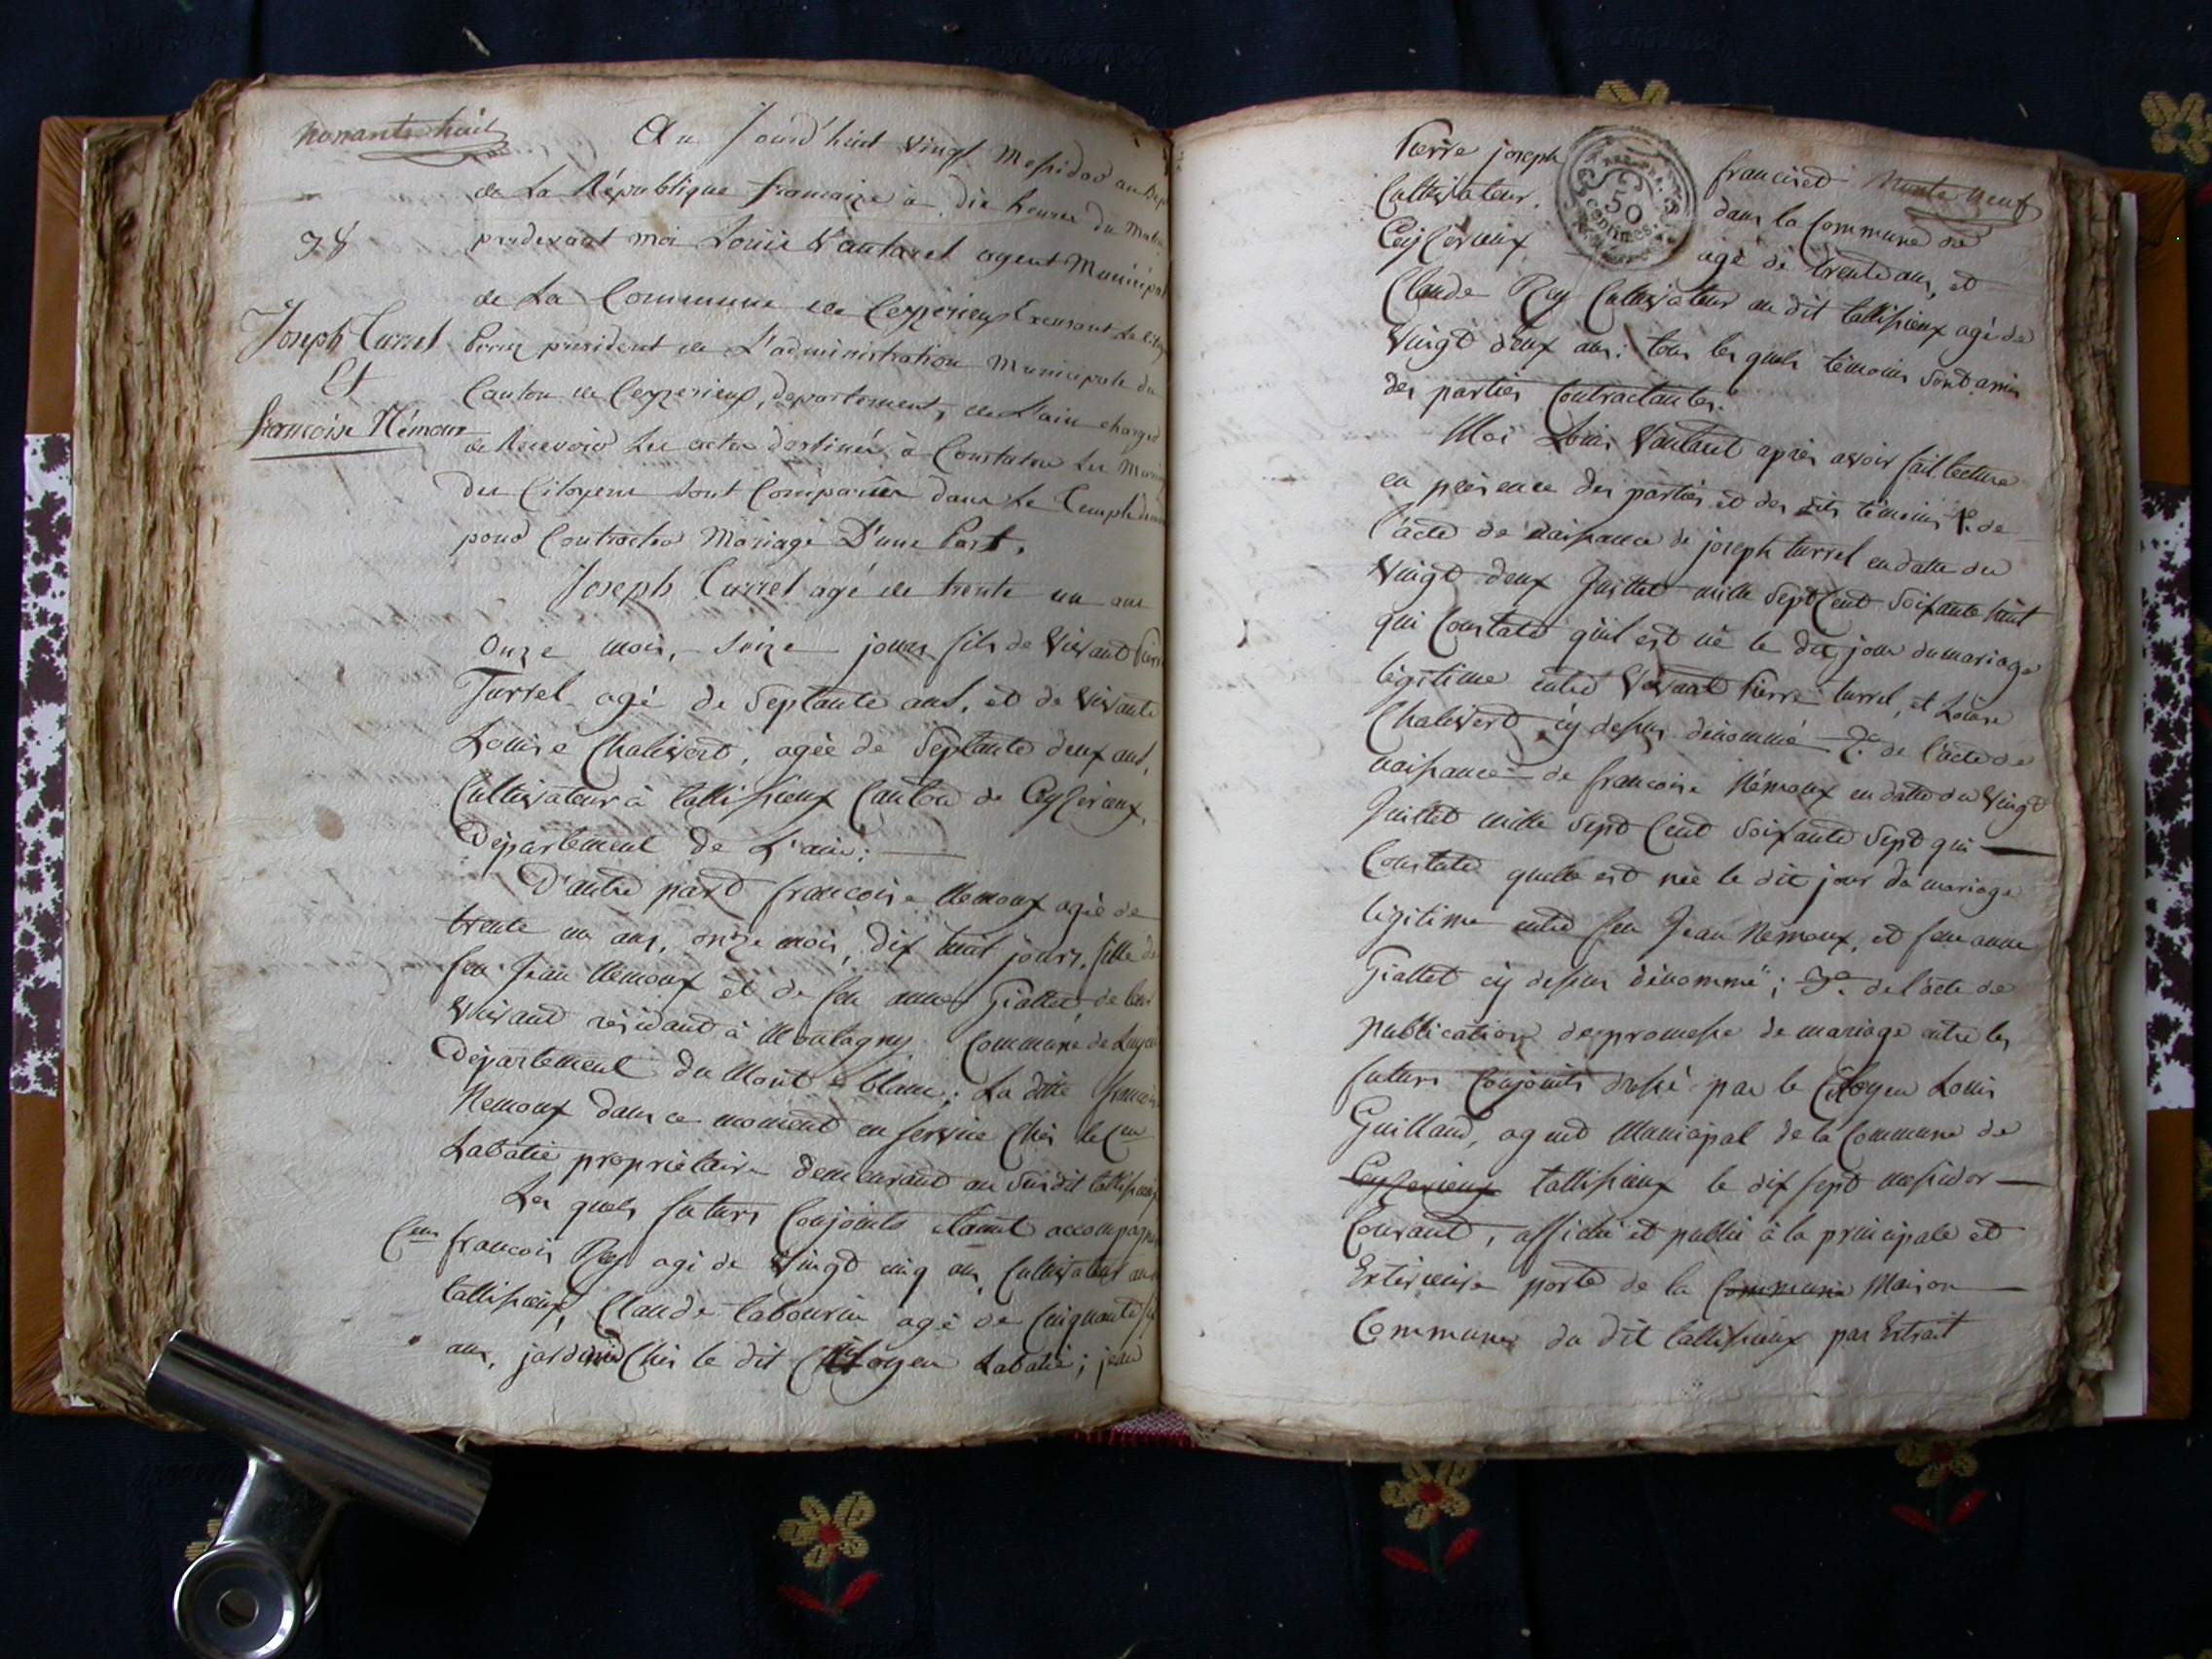 nonante huit
Au Jourd'huit vingt Messidor an Sept
de La République francaise à dix heures du Matin
pardevant moi Louis Vantaret agent Municipal
98
de La Commune de Ceyzerieux Excusant Le Citoyen
Joseph Turrel
président de L'administration Municipale du
Et
Canton de Ceyzerieux, departement de L'ain chargé
francoise Némoux
de Recevoir Les actes destinés à Constater Les Mariages
des Citoyens sont Comparus dans Le Temple
pour Contracter Mariage D'une Part,
Joseph Turrel agé de trente un ans
Onze mois, Seize jours fils de Vivant Pierre
Turrel agé de Septante ans, et de Vivante
Louise Chalivert, agée de Septante deux ans,
Cultivateur à tallissieux Canton de Ceyserieux,
Departement de L'ain;
D'autre part francoise Nemoux agée de
trente un ans, onze mois, dix huit jours, fille de
feu Jean Nemoux et de feu anne Giattet, de leur
Vivant résidant à Montagny Commune de
Departement du Mont-blanc; La ditte francoise
Nemoux dans ce moment en service Chés le Cen
Labatie propriétaire demeurant au Susdit tallissieux
Les quels futurs Conjoints étant accompagnés
Cens francois Rey agé de Vingt cinq ans, Cultivateur au
tallissieux, Claude tabourin agé de Cinquante
ans, jardinier Chés le dit Citoyen Labatie; jean
Pierre joseph francised Nonte Neuf
Cultivateur, dans la Commune de
Ceyserieux agé de trente ans, et
Claude Rey Cultivateur au dit tallissieux agé de
Vingt deux ans; tous les quels témoins sont amis
des parties Contractantes.
Moi Louis Vantaret après avoir fait lecture
en présence des parties et des dits témoins 1o. de
l'acte de naissance de joseph turrel en datte du
Vingt deux Juillet mille Sept Cent Soixante huit
qui Constate qu'il est né le dit jour du mariage
légitime entre Vivant Pierre turrel, et Louise
Chalivert cy dessus dénommé 2o. de l'acte de
naissance de francoise Némoux en datte du Vingt
Juillet mille Sept Cent Soixante Sept qui
Constate quelle est née le dit jour du mariage
légitime entre feu Jean Nemoux, et feue anne
Giattet cy dessus dénommé; 3o. de l'acte de
publication de promesse de mariage entre les
futurs Conjoints dressé par le Citoyen Louis
Guilland, agent Municipal de la Commune de
Ceyserieux tallissieux le dix sept messidor
Courant, affiché et publié à la principale et
Extérieure porte de la Commune Maison
Commune du dit tallissieux par Extrait